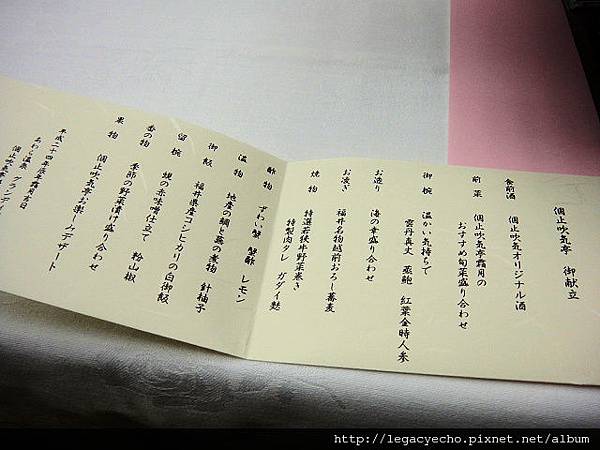 個止吹気亭 御献立
食前酒 個止吹気オリジナル酒
前菜 個止吹気亭霜月の
おすすめ旬菜盛り合わせ
御椀 温かい気持ちで
雲丹真丈 蒸鮑 紅葉金時人参
お造り 海の幸盛り合わせ
お凌ぎ 福井名物越前おろし蕎麦
焼物 特選若狭牛野菜巻き
特製肉タレ ガダイ麩
酢物 ずわい蟹 蟹酢 レモン
温物 地産の鯛と蕪の煮物 針柚子
御飯 福井県産コシヒカリの白御飯
留椀 焼の赤味噌仕立て 粉山椒
香の物 季節の野菜漬け盛り合わせ
果物 個止吹気亭お楽しみデザート
平成二十四年度霜月吉日
あわら温泉 グランディア
個止吹気亭
http://legacyecho.pixnet.net/album